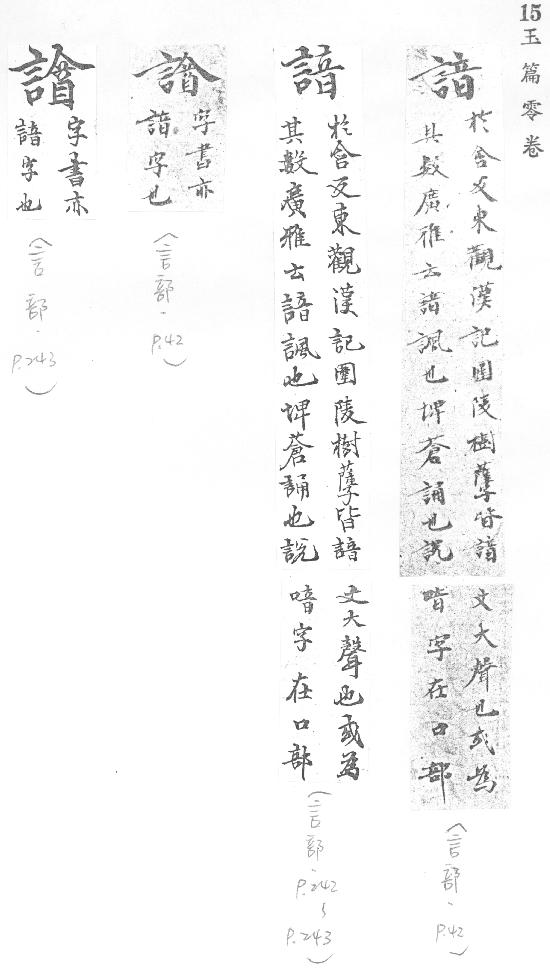 15
玉篇零卷
諳
於含反東觀漢記園陵樹孽皆諳
其數廣雅云諳諷也埤蒼誦也說
文大聲也或為
喑字在口部
(言部、P.42)
諳
於含反東觀漢記園陵樹孽皆諳
其數廣雅云諳諷也埤蒼誦也說
文大聲也或為
喑字在口部
(言部、P.242~P.243)
字書亦
諳字也
(言部、P.42)
字書亦
諳字也
(言部、P.243)